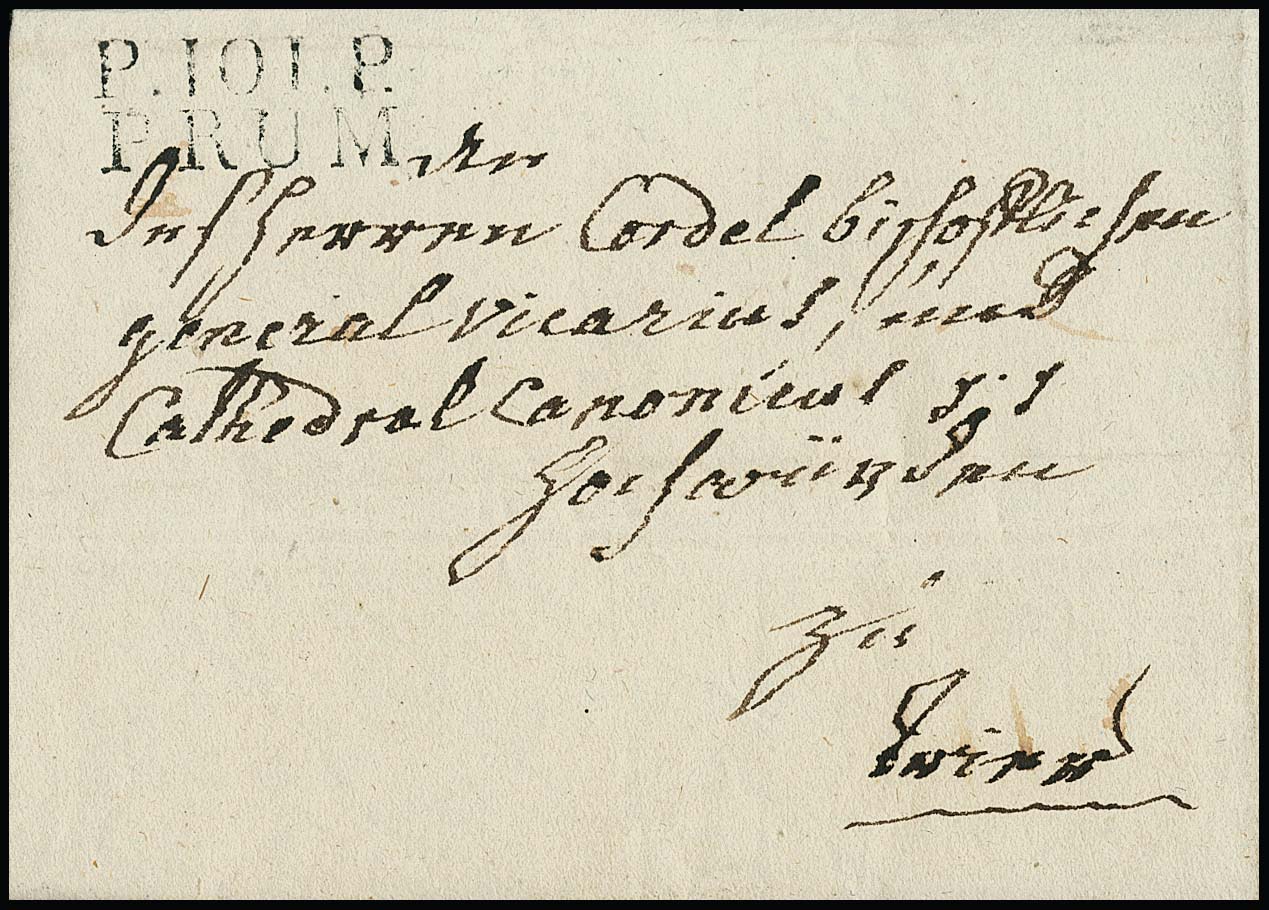 P.101.P.
PRUM
An
Des Herren Cordel bischoflichen
general vicarius, und
Cathedral Canonicus
Hochwürden
zu
Trier